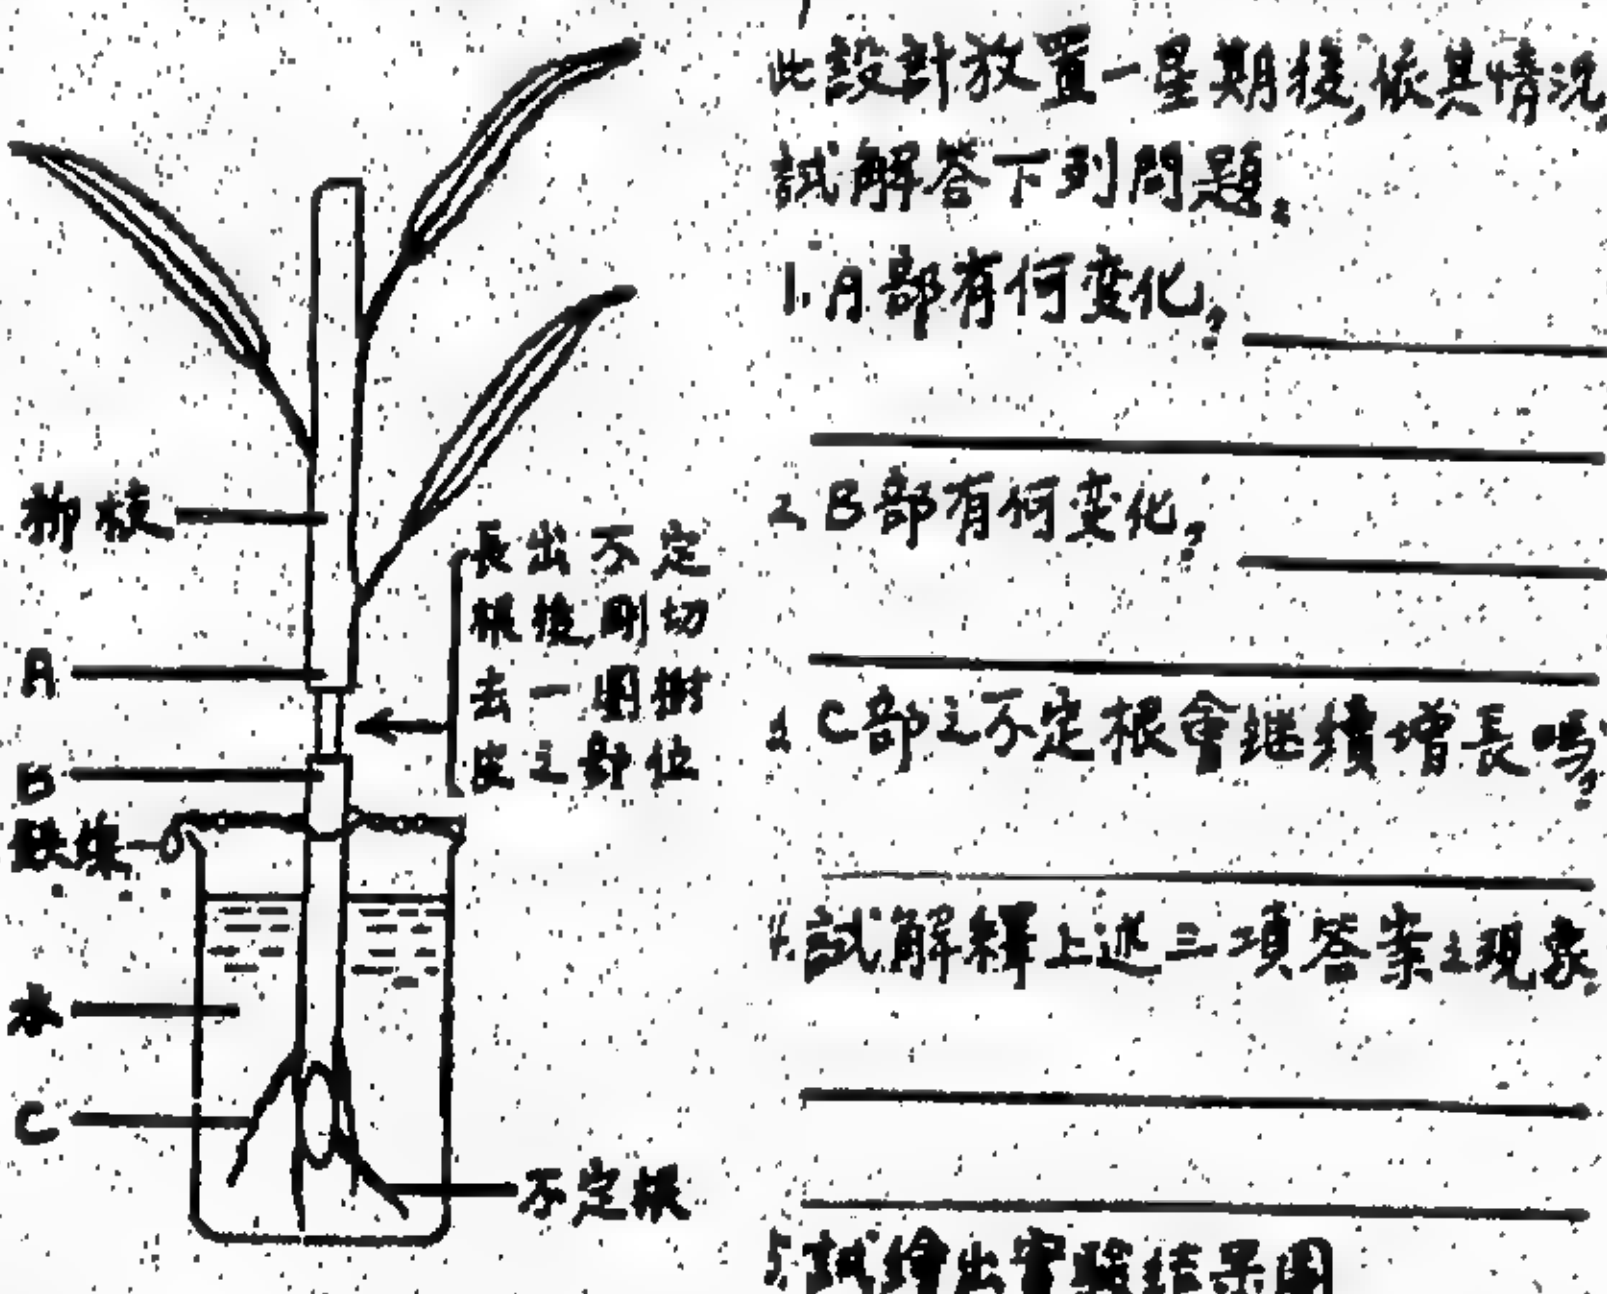 柳枝
A
B
鉄線
水
C
長出不定
根後剛切
去一圈樹
皮之部位
不定根
此設計放置一星期後,依其情況,
試解答下列問題。
1. A部有何变化,
2. B部有何变化,
3. C部之不定根會继續增長嗎,
4. 試解釋上述三項答案之現象
5. 試繪出實驗結果圖